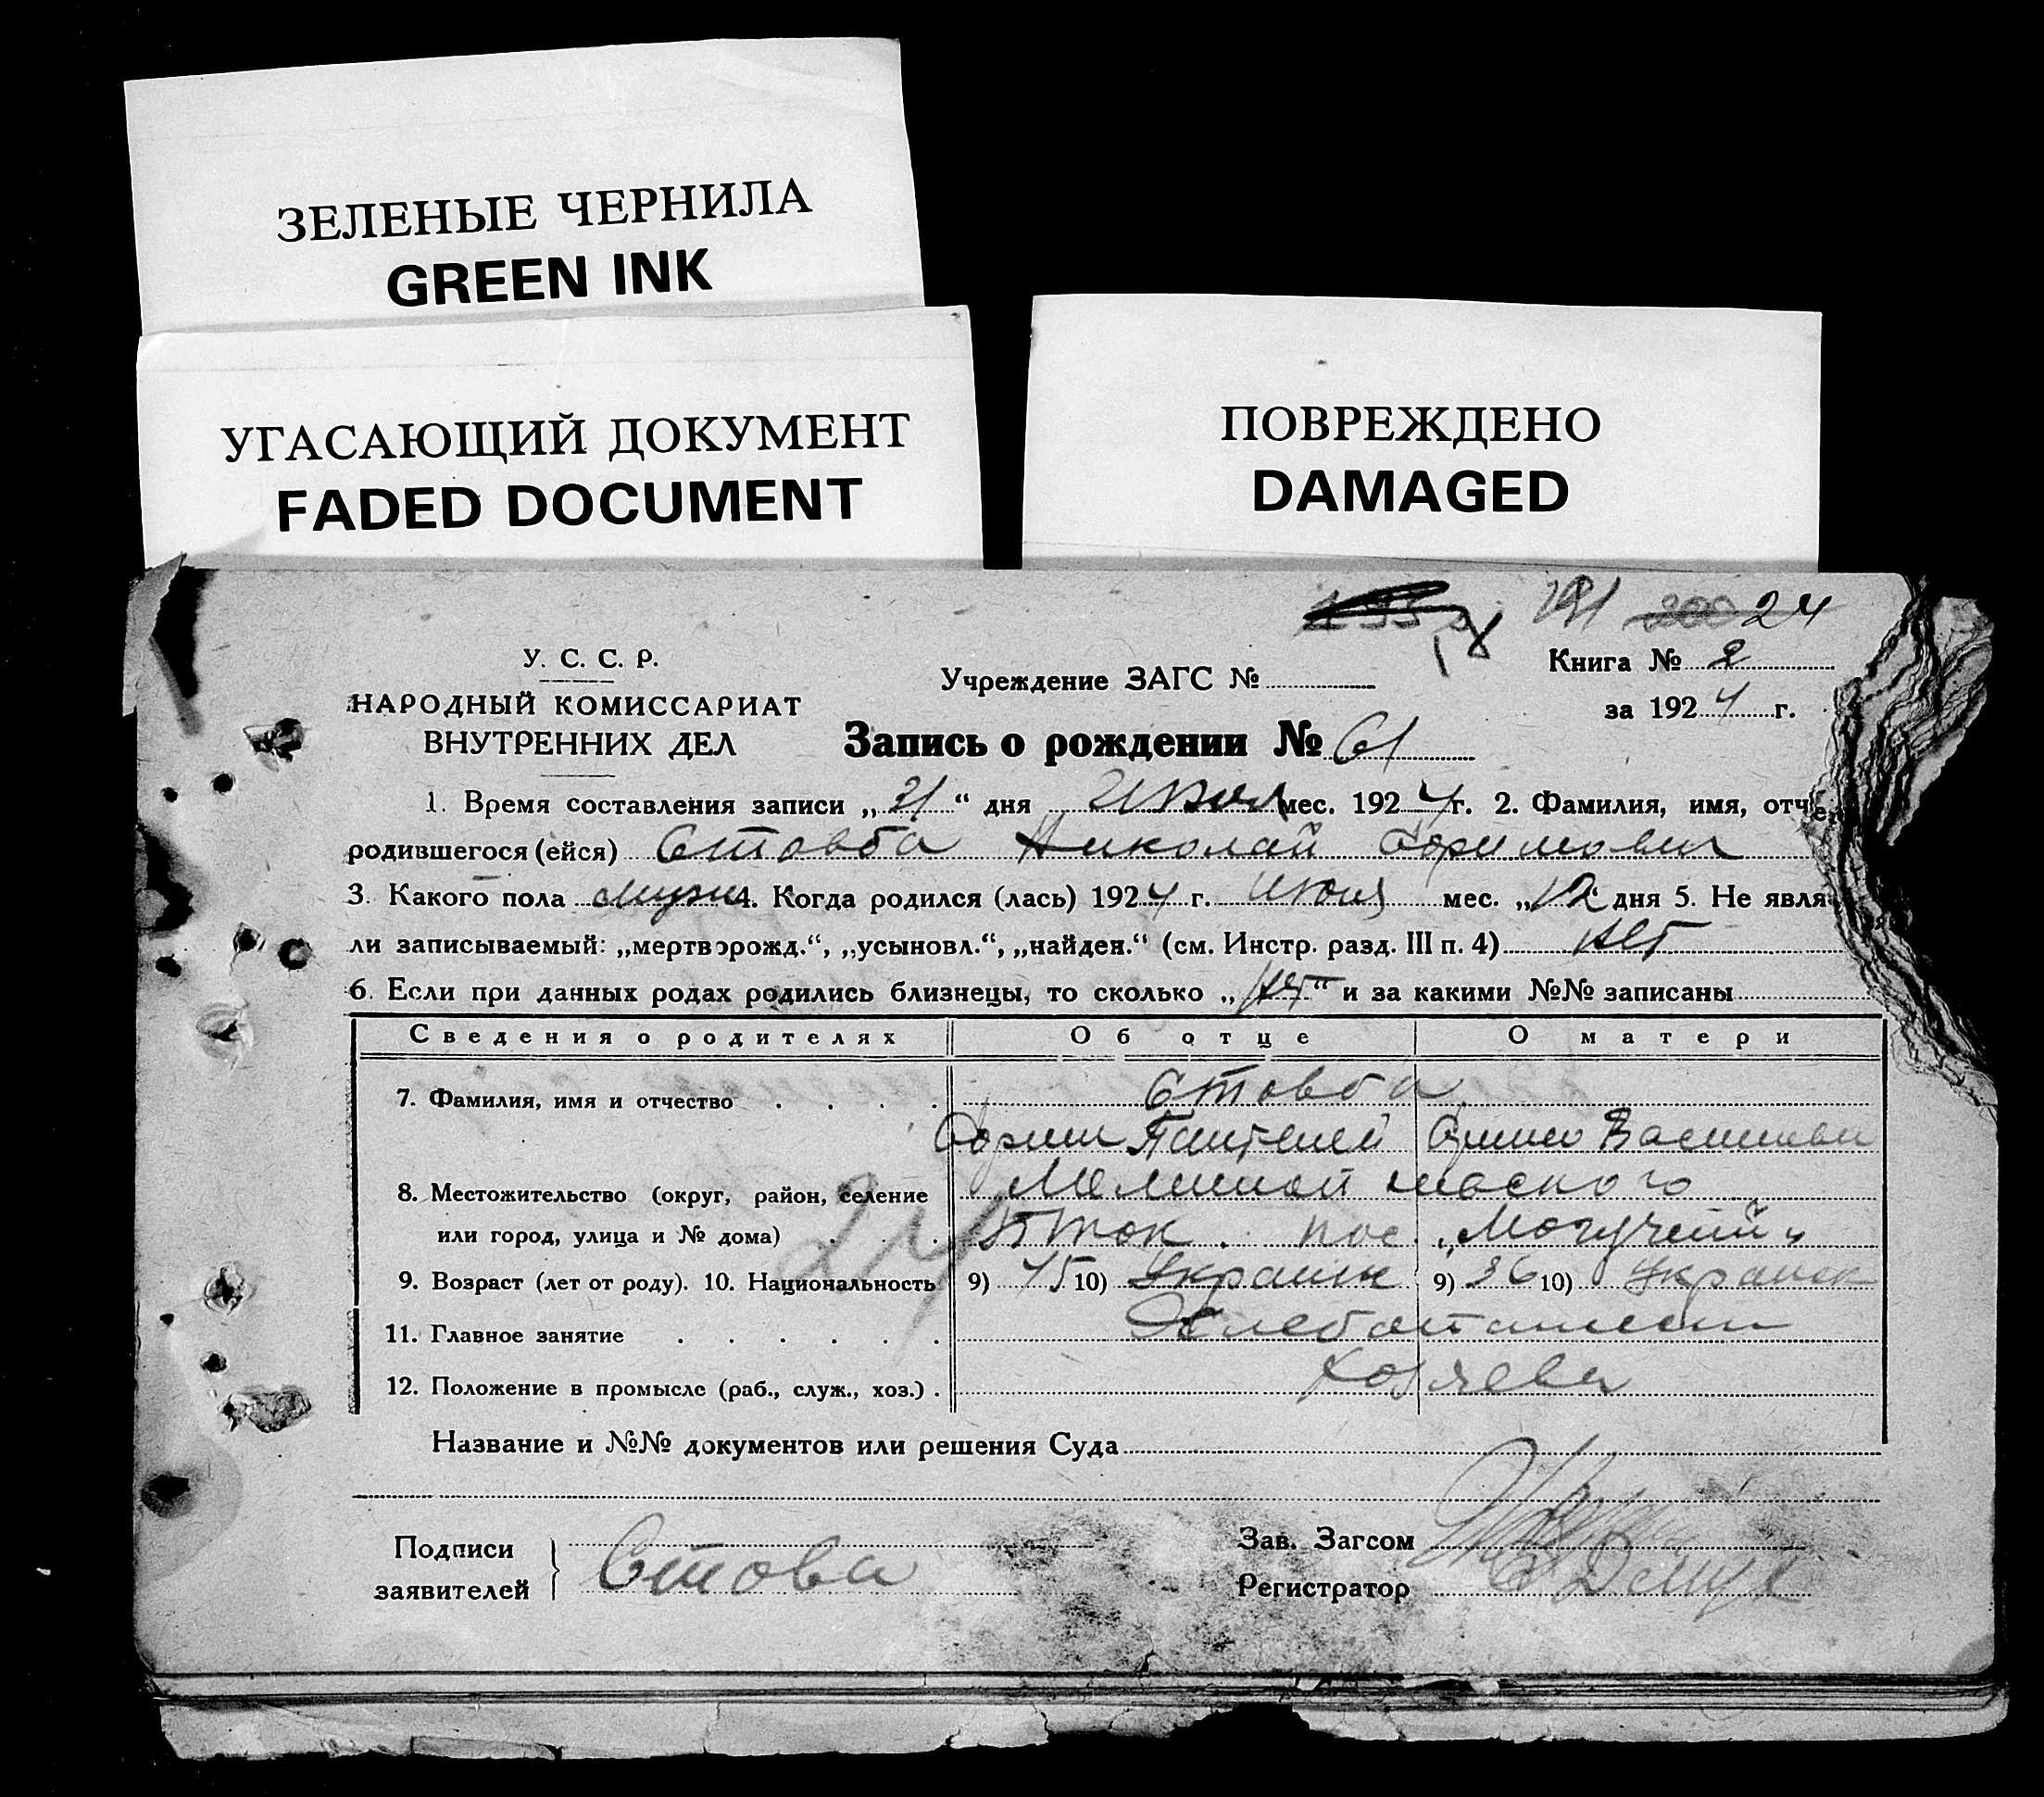 ЗЕЛЕНЫЕ ЧЕРНИЛА
GREEN INK
УГАСАЮЩИЙ ДОКУМЕНТ
FADED DOCUMENT
ПОВРЕЖДЕНО
DAMAGED
191 200 24
18
У. С. С. Р.
НАРОДНЫЙ КОМИССАРИАТ
ВНУТРЕННИХ ДЕЛ
Учреждение ЗАГС №
Книга № 2
за 1924 г.
Запись о рождении № 61
1. Время составления записи „21“ дня мес. 1924 г. 2. Фамилия, имя, отче
родившегося (ейся) Стовба Николай
3. Какого пола муж 4. Когда родился (лась) 1924 г. Июля мес. „12“ дня 5. Не явля
ли записываемый: „мертворожд.“, „усыновл.“, „найден.“ (см. Инстр. разд. III п. 4) нет
6. Если при данных родах родились близнецы, то сколько „нет“ и за какими №№ записаны
Сведения о родителях Об отце О матери
7. Фамилия, имя и отчество Стовба
8. Местожительство (округ, район, селение
или город, улица и № дома) пос. „Могучий“
9. Возраст (лет от роду). 10. Национальность 9) 45 10) Украин 9) 36 10)
11. Главное занятие
12. Положение в промысле (раб., служ., хоз.) Хозяева
Название и №№ документов или решения Суда
Подписи
заявителей Стовба
Зав. Загсом
Регистратор